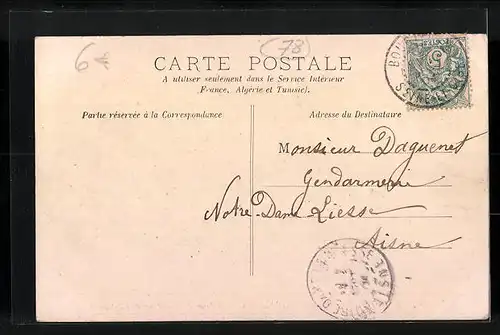 6
(78)
CARTE POSTALE
A utiliser seulement dans le Service Intérieur
(France, Algérie et Tunisie).
Partie réservée à la Correspondance
Adresse du Destinataire
Monsieur Daguenet
Gendarmerie
Notre-Dame Liesse
Aisne